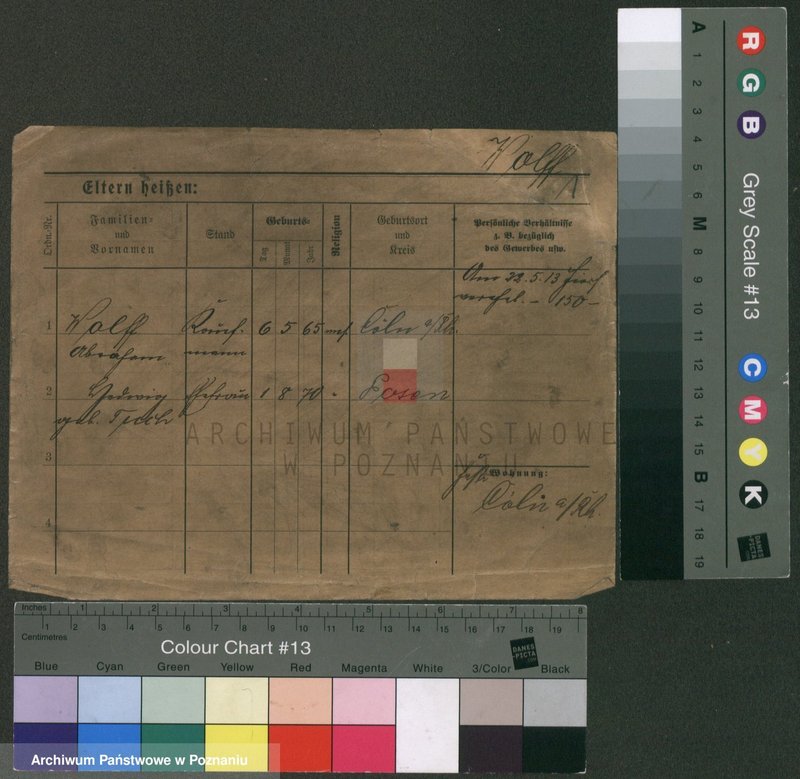 Wolff
Eltern heißen:
Ordn.-Nr.
Familien-
und
Vornamen
Stand
Geburts-
Tag
Monat
Jahr
Religion
Geburtsort
und
Kreis
Persönliche Verhältnisse
z. B. bezüglich
des Gewerbes usw.
Am 22.5.13 hier
- 150 -
1 Wolff Kauf- 6 5 65 mos Cöln a/Rh.
Abraham mann
2 Hedwig Ehefrau 1 8 70 " Posen
geb.
3
Wohnung:
Cöln a/Rh.
4
ARCHIWUM PAŃSTWOWE
W POZNANIU
A 1 2 3 4 5 6 M 8 9 10 11 12 13 14 15 B 17 18 19
R G B
Grey Scale #13
C M Y K
DANES
-PICTA
.COM
Inches 1 2 3 4 5 6 7 8
Centimetres 1 2 3 4 5 6 7 8 9 10 11 12 13 14 15 16 17 18 19
Colour Chart #13
DANES
-PICTA
.COM
Blue Cyan Green Yellow Red Magenta White 3/Color Black
Archiwum Państwowe w Poznaniu